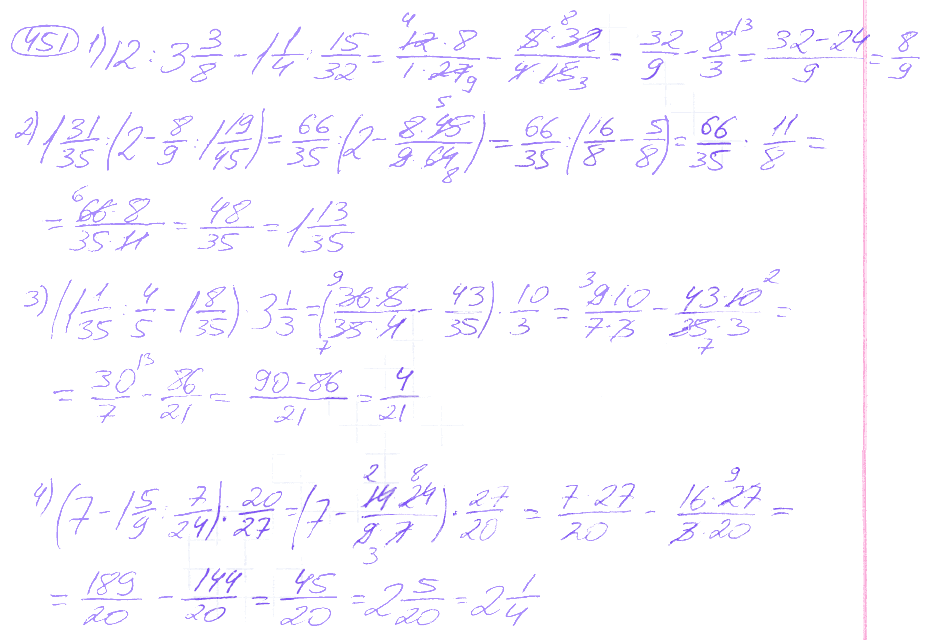 451 1) 12 : 3 3/8 - 1 1/4 : 15/32 = 12·8/1·27 - 5·32/4·15 = 32/9 - 8/3 = 32-24/9 = 8/9
2) 1 31/35 : (2 - 8/9 : 1 19/45) = 66/35 : (2 - 8·45/9·64) = 66/35 : (16/8 - 5/8) = 66/35 · 11/8 =
= 66·8/35·11 = 48/35 = 1 13/35
3) (1 1/35 : 4/5 - 1 8/35) · 3 1/3 = (36·5/35·4 - 43/35) · 10/3 = 9·10/7·3 - 43·10/35·3 =
= 30/7 - 86/21 = 90-86/21 = 4/21
4) (7 - 1 5/9 : 7/24) · 20/27 = (7 - 14·24/9·7) · 27/20 = 7·27/20 - 16·27/3·20 =
= 189/20 - 144/20 = 45/20 = 2 5/20 = 2 1/4